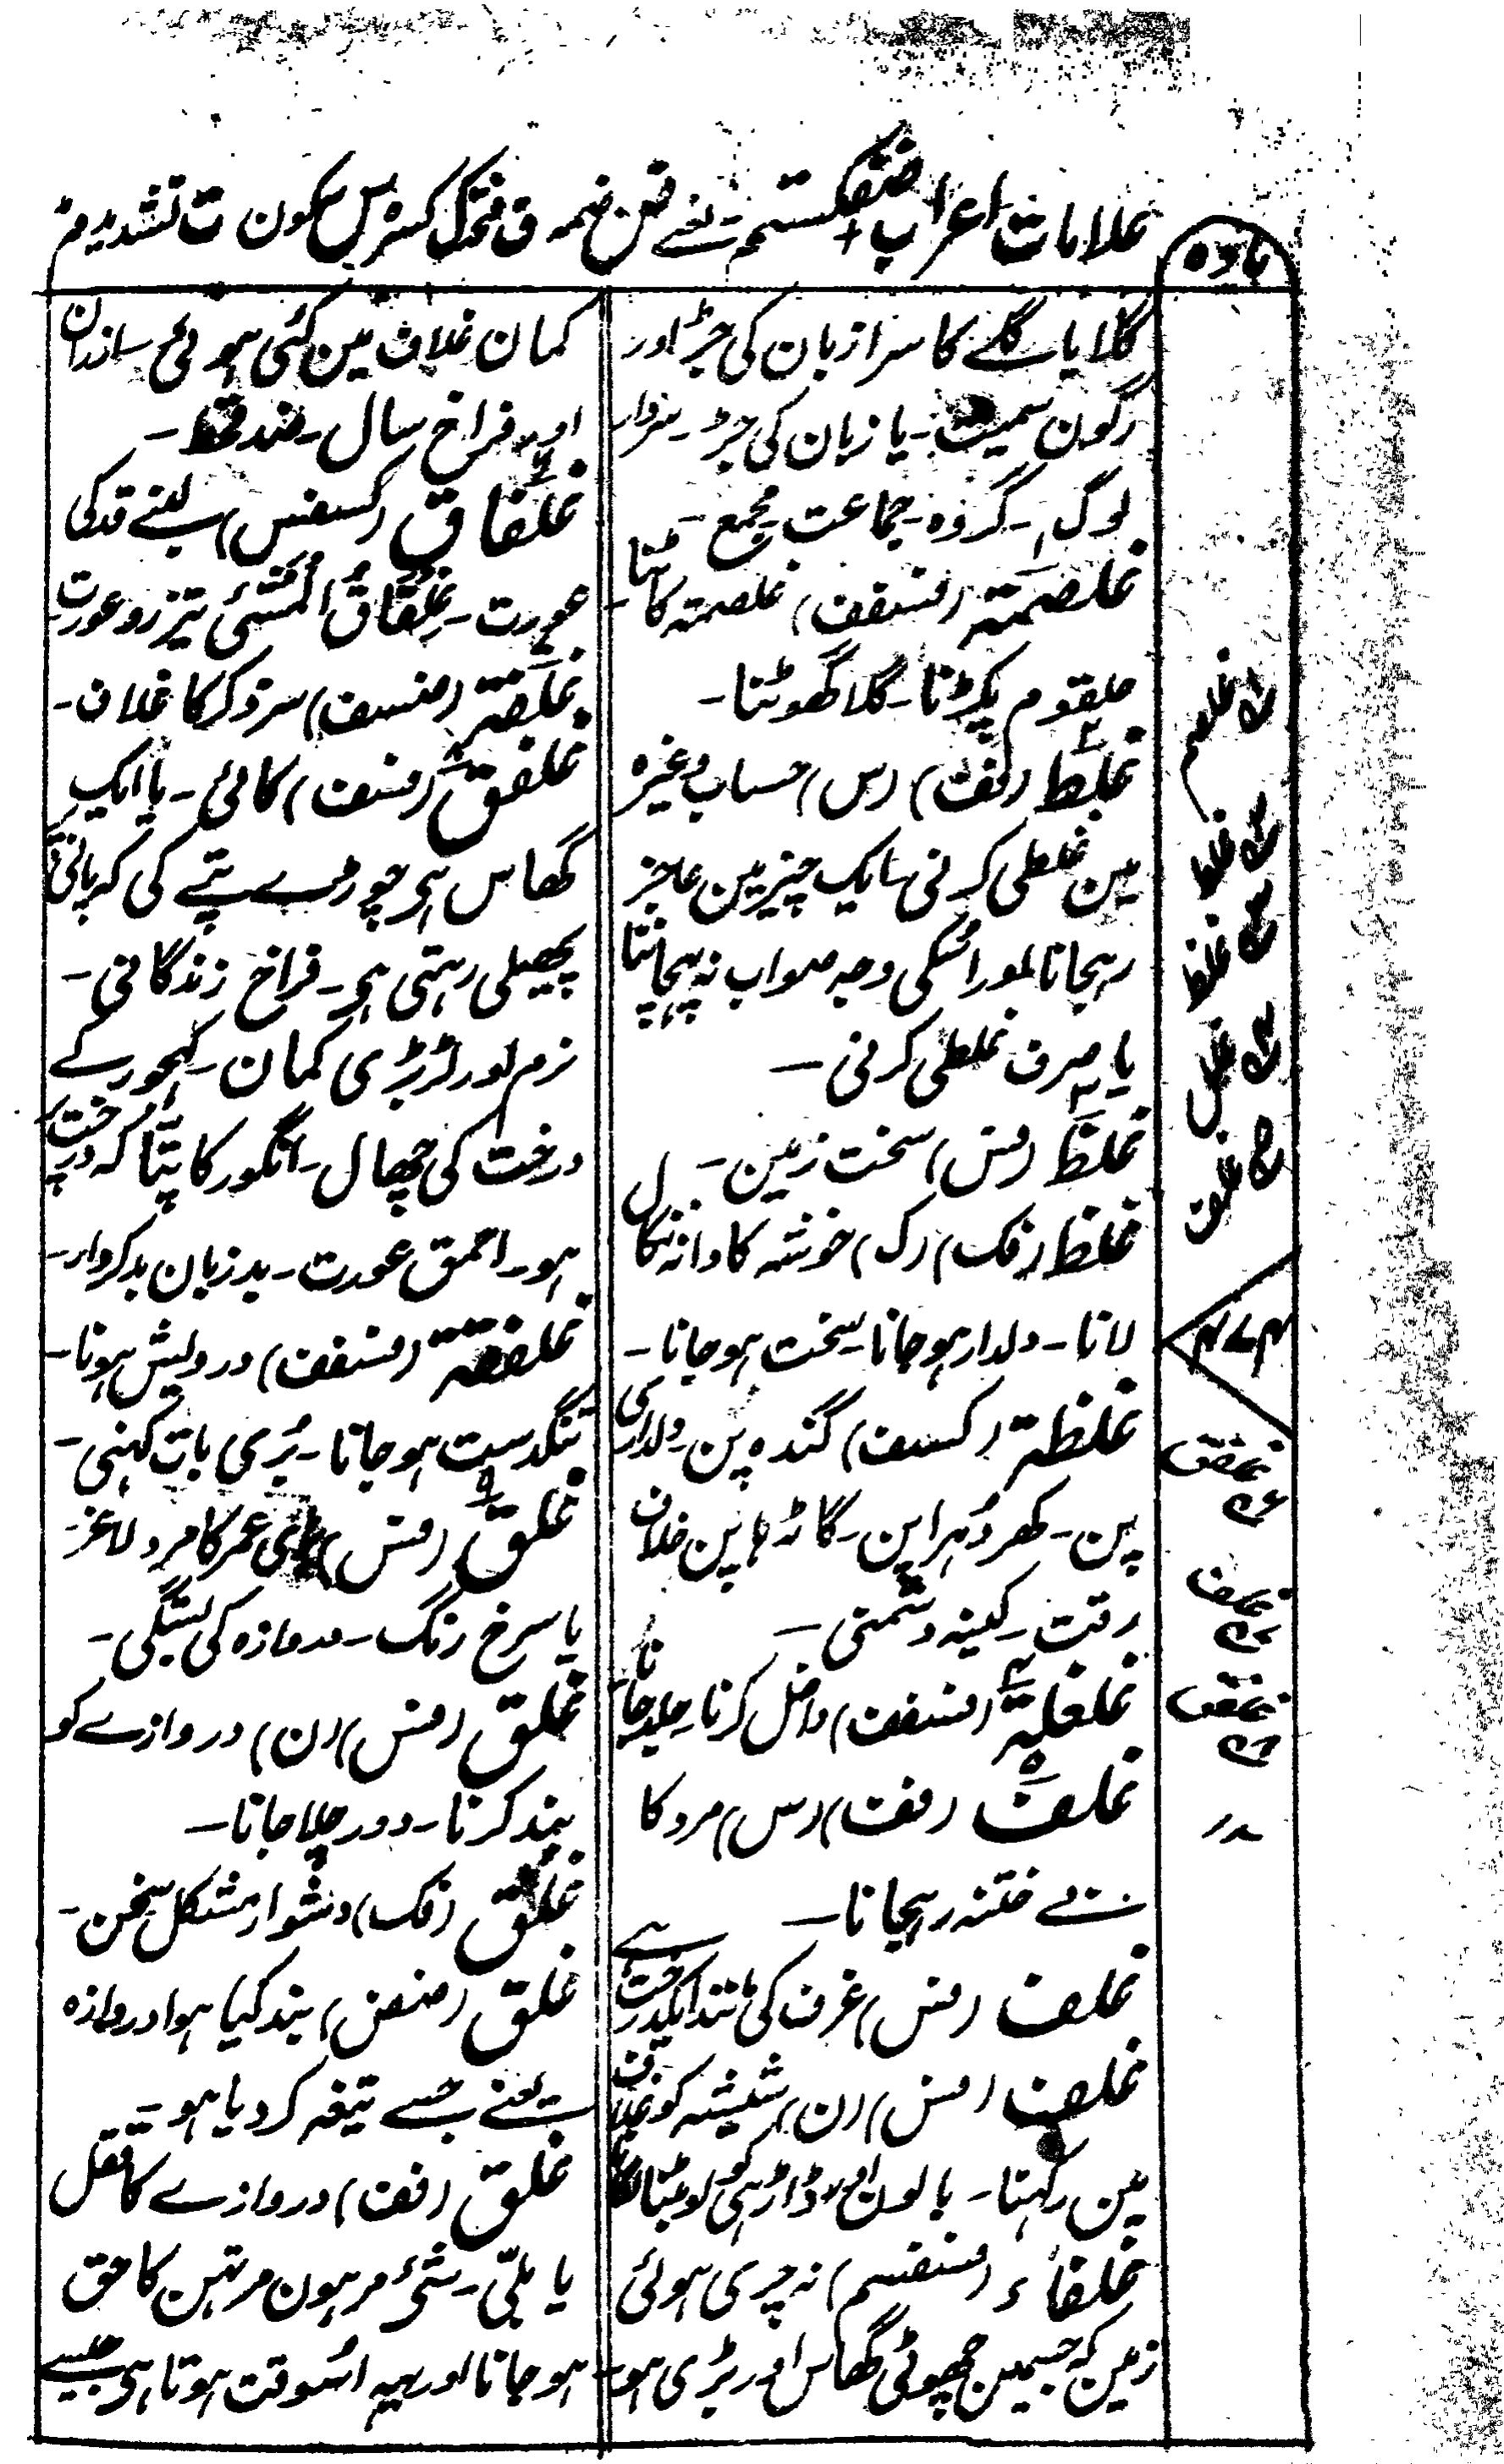 علامات اعراب ضفکستم یعنے ض ضمہ ف فتحہ ک کسرہ س سکون ت تشدید م
مادہ
گلا یا گلے کا سرا زبان کی جڑ اور
رگون سمیت۔ یا زبان کی جڑ۔ سردار
لوگ۔ گروہ۔ جماعت۔ مجمع۔
غلصمۃ (فسففـ) غلصمتہ کاٹنا۔
حلقوم پکڑنا۔ گلا گھوٹنا۔
غلط (فف) (س) حساب وغیرہ
مین غلطی کرنی۔ ایک چیز مین عاجز
رہجانا اور اسکی وجہ صواب نہ پہچاننا
یا یہ صرف غلطی کرنی۔
غلظ (فس) سخت زمین۔
غلظ (فک) (ک) خوشہ کا دانہ نکال
لانا۔ دلدار ہو جانا۔ سخت ہو جانا۔
غلظۃ (کسف) گندہ پن۔ دلداری
پن۔ کھردہرا پن۔ گاڑھا پن خلاف
رقت۔ کینہ دشمنی۔
غلغلۃ (فسفف) داخل کرنا۔ جلد جانا
غلف (فف) (س) مرد کا
بے ختنہ رہجانا۔
غلف (فس) غرف کی مانند ایک درخت ہے
غلف (فس) (ن) شیشہ کو غلاف
مین رکہنا۔ بالون اور ڈاڑہی کو لوبٹنا لگانا
غلفاء (فسفسم) نہ چری ہوئی
زمین کہ جسمین چھوٹی گھاس اور بڑی ہو۔
کمان غلاف مین کئی ہوئی سانڈان
اور فراخ سال۔ ضد قحط۔
غلفاق (کسفس) لبنے قد کی
عورت۔ غلفاق المشی تیزرو عورت
غلفۃ (ضسف) سرذکر کا غلاف۔
غلفق (فسف) کائی۔ یا ایک
گھاس ہی چوڑے پتے کی کہ پانی پر
پھیلی رہتی ہی۔ فراخ زندگانی۔
نرم اور لڑبڑی کمان۔ کہجور کے
درخت کی چھال۔ انگور کا پتا کہ درخت پر
ہو۔ احمق عورت۔ بد زبان بدکردار۔
غلفقۃ (فسفف) درویش ہونا۔
تنگدست ہو جانا۔ بری بات کہنی۔
غلق (فس) بڑی عمر کا مرد لاغر
یا سرخ رنگ۔ دروازہ کی بستگی۔
غلق (فس) (ن) دروازے کو
بند کرنا۔ دور چلا جانا۔
غلق (فک) دشوار مشکل سخن۔
غلق (ضض) بند کیا ہوا دروازہ
یعنے جسے تیغہ کر دیا ہو۔
غلق (فف) دروازے کا قفل
یا بلی۔ شئ مرہون مرتہن کا حق
ہو جانا اور یہہ اسوقت ہوتا ہی جیسے